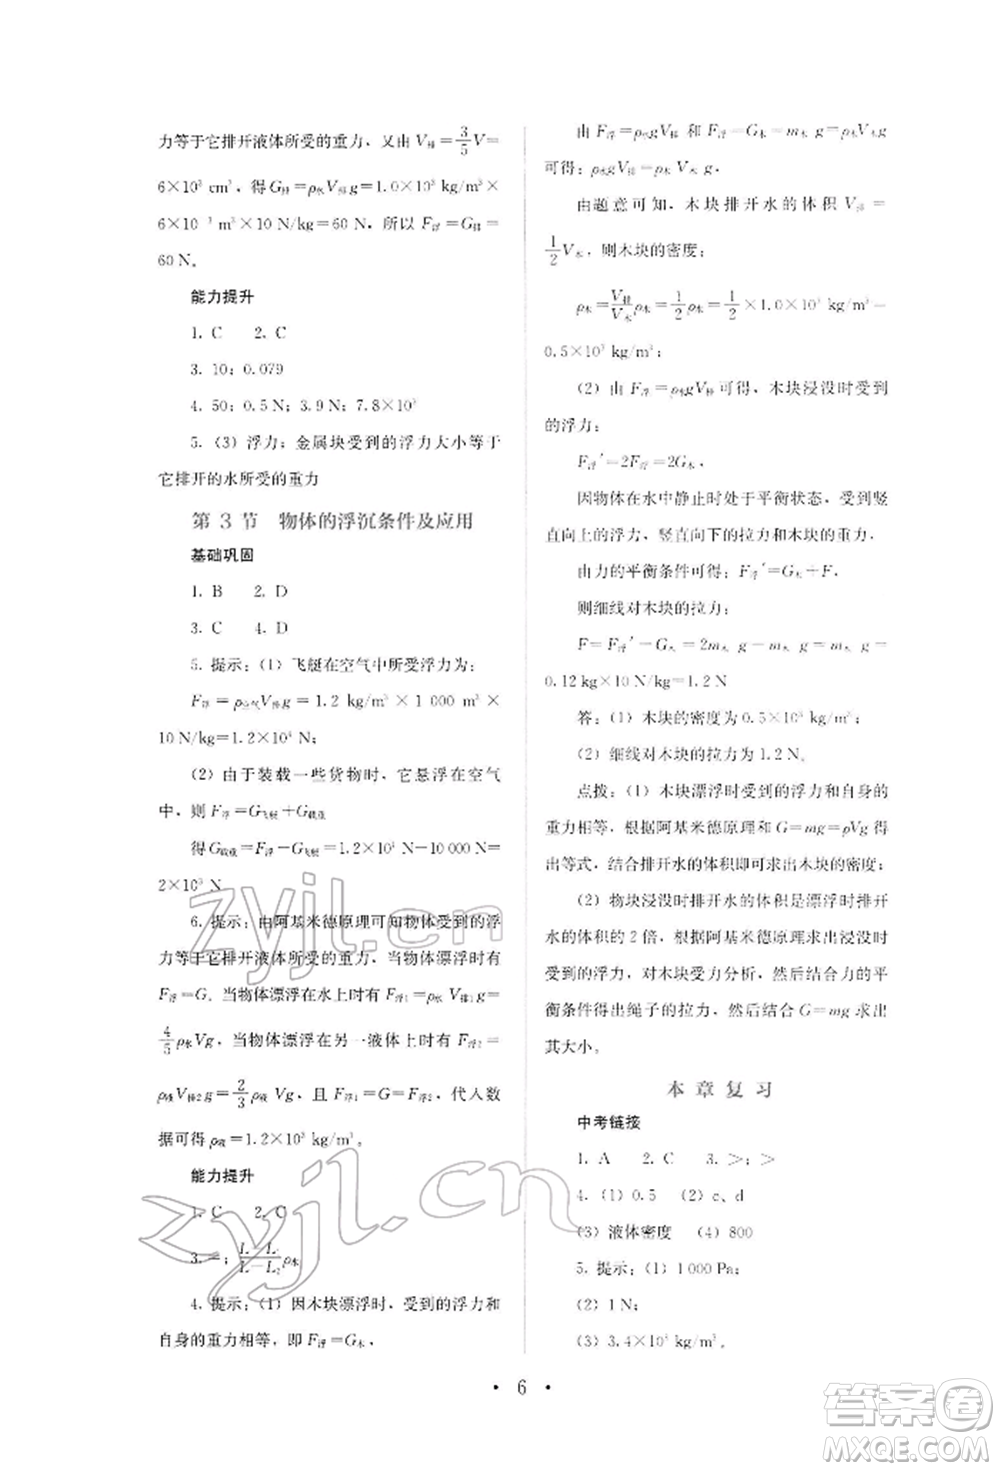 力等于它排开液体所受的重力，又由 V排=3/5V=
6×10³ cm³，得 G排=ρ水V排g=1.0×10³ kg/m³×
6×10⁻³ m³×10 N/kg=60 N，所以 F浮=G排=
60 N。
能力提升
1. C  2. C
3. 10；0.079
4. 50；0.5 N；3.9 N；7.8×10³
5.（3）浮力；金属块受到的浮力大小等于
它排开的水所受的重力
第 3 节  物体的浮沉条件及应用
基础巩固
1. B  2. D
3. C  4. D
5. 提示：（1）飞艇在空气中所受浮力为：
F浮=ρ空气V排g=1.2 kg/m³×1 000 m³×
10 N/kg=1.2×10⁴ N；
（2）由于装载一些货物时，它悬浮在空气
中，则 F浮=G飞艇+G载重
得 G载重=F浮-G飞艇=1.2×10⁴ N-10 000 N=
2×10³ N
6. 提示：由阿基米德原理可知物体受到的浮
力等于它排开液体所受的重力，当物体漂浮时有
F浮=G. 当物体漂浮在水上时有 F浮1=ρ水V排1g=
4/5ρ水Vg，当物体漂浮在另一液体上时有 F浮2=
ρ液V排2g=2/3ρ液Vg，且 F浮1=G=F浮2，代入数
据可得 ρ液=1.2×10³ kg/m³。
能力提升
1. C  2. C
4. 提示：（1）因木块漂浮时，受到的浮力和
自身的重力相等，即 F浮=G木，
由 F浮=ρ水gV排 和 F浮=G木=m木g=ρ木V木g
可得：ρ水gV排=ρ木V木g，
由题意可知，木块排开水的体积 V排=
1/2V木，则木块的密度：
ρ木=V排/V木ρ水=1/2ρ水=1/2×1.0×10³ kg/m³=
0.5×10³ kg/m³；
（2）由 F浮=ρ水gV排可得，木块浸没时受到
的浮力：
F浮′=2F浮=2G木，
因物体在水中静止时处于平衡状态，受到竖
直向上的浮力、竖直向下的拉力和木块的重力，
由力的平衡条件可得：F浮′=G木+F，
则细线对木块的拉力：
F=F浮′-G木=2m木g-m木g=m木g=
0.12 kg×10 N/kg=1.2 N
答：（1）木块的密度为 0.5×10³ kg/m³；
（2）细线对木块的拉力为 1.2 N。
点拨：（1）木块漂浮时受到的浮力和自身的
重力相等，根据阿基米德原理和 G=mg=ρVg 得
出等式，结合排开水的体积即可求出木块的密度；
（2）物块浸没时排开水的体积是漂浮时排开
水的体积的 2 倍，根据阿基米德原理求出浸没时
受到的浮力，对木块受力分析，然后结合力的平
衡条件得出绳子的拉力，然后结合 G=mg 求出
其大小。
本 章 复 习
中考链接
1. A  2. C  3. >；>
4.（1）0.5 （2）c、d
（3）液体密度 （4）800
5. 提示：（1）1 000 Pa；
（2）1 N；
（3）3.4×10³ kg/m³。
· 6 ·
zyjl.cn
zyjl.cn
答案卷
MXQE.COM